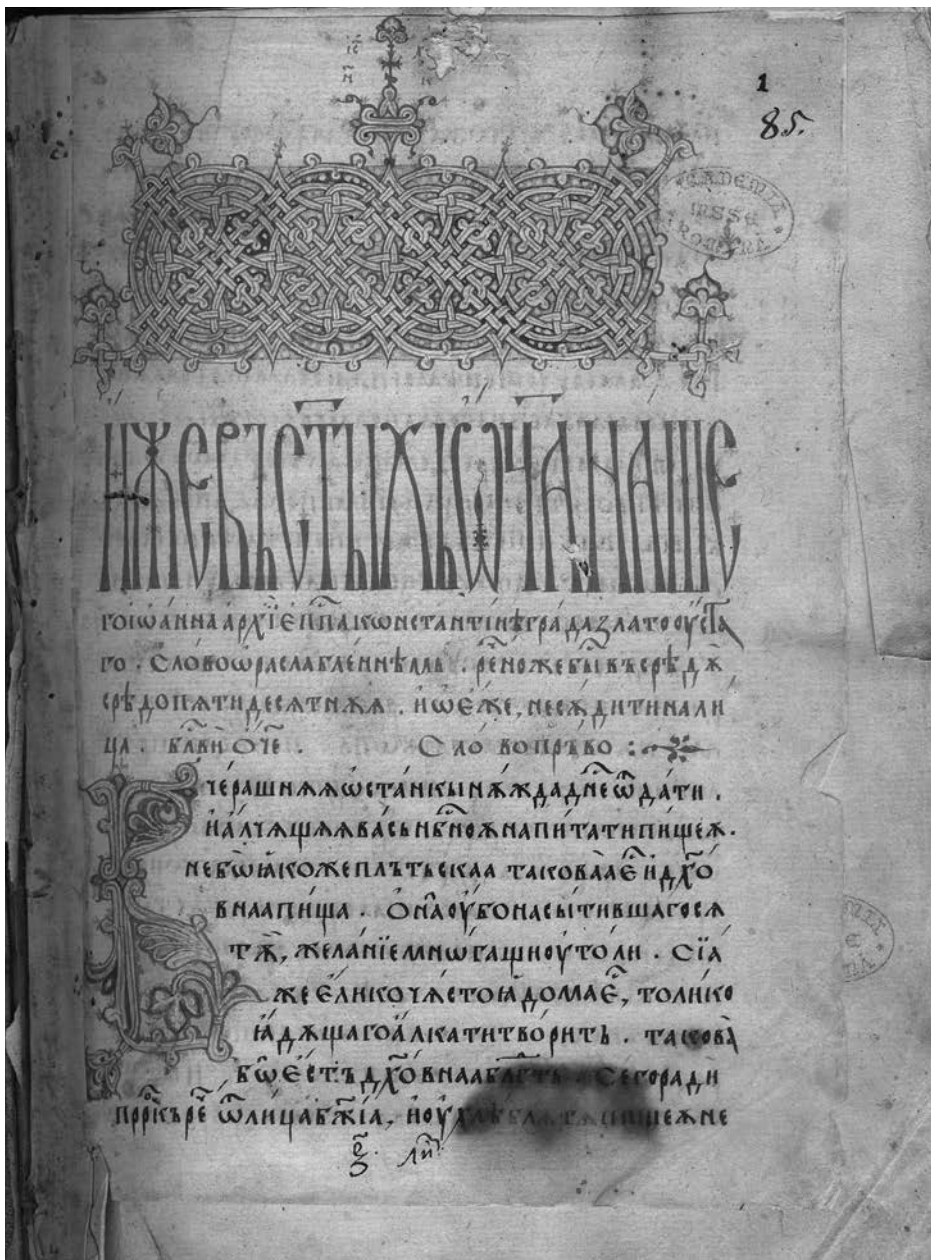 ІС ХС
НИ КА
1
85.
ИЖЕ ВЪ СТ҃ЫХЬ Ѡ҃ЧА НАШЕ
го іѡанна архїеп҃па кѡнстантінѣ града златоуста
го . слово ѡ раслабленнѣмь . рено же бы въ срѣдѫ
срѣдопятидесятнѫѧ . и ѡ еже, не сѫдити на ли
ца . блв҃и ѿче . Слово прьво :
Вчерашнѧѧ ѡстанкы нѫжда дне҃ ѿдати .
и алчѧщѧѧ вась нб҃ноѫ напитати пищеѫ .
не бѡ ꙗкоже плътьскаа таковаа е҃ и дх҃о
внаа пища . Она ѹбо насытившагосѧ
тѫ, желанїе мнѡгащи ѹтоли . Сїа
же елико чѧсто ꙗдома е҃, толико
ꙗдѫщаго алкати творить . такова
бѡ ест҃ъ дх҃овнаа благ҃ть . Сего ради
пррⷪ҇къ ре҃ ѿ лица бж҃їа, не